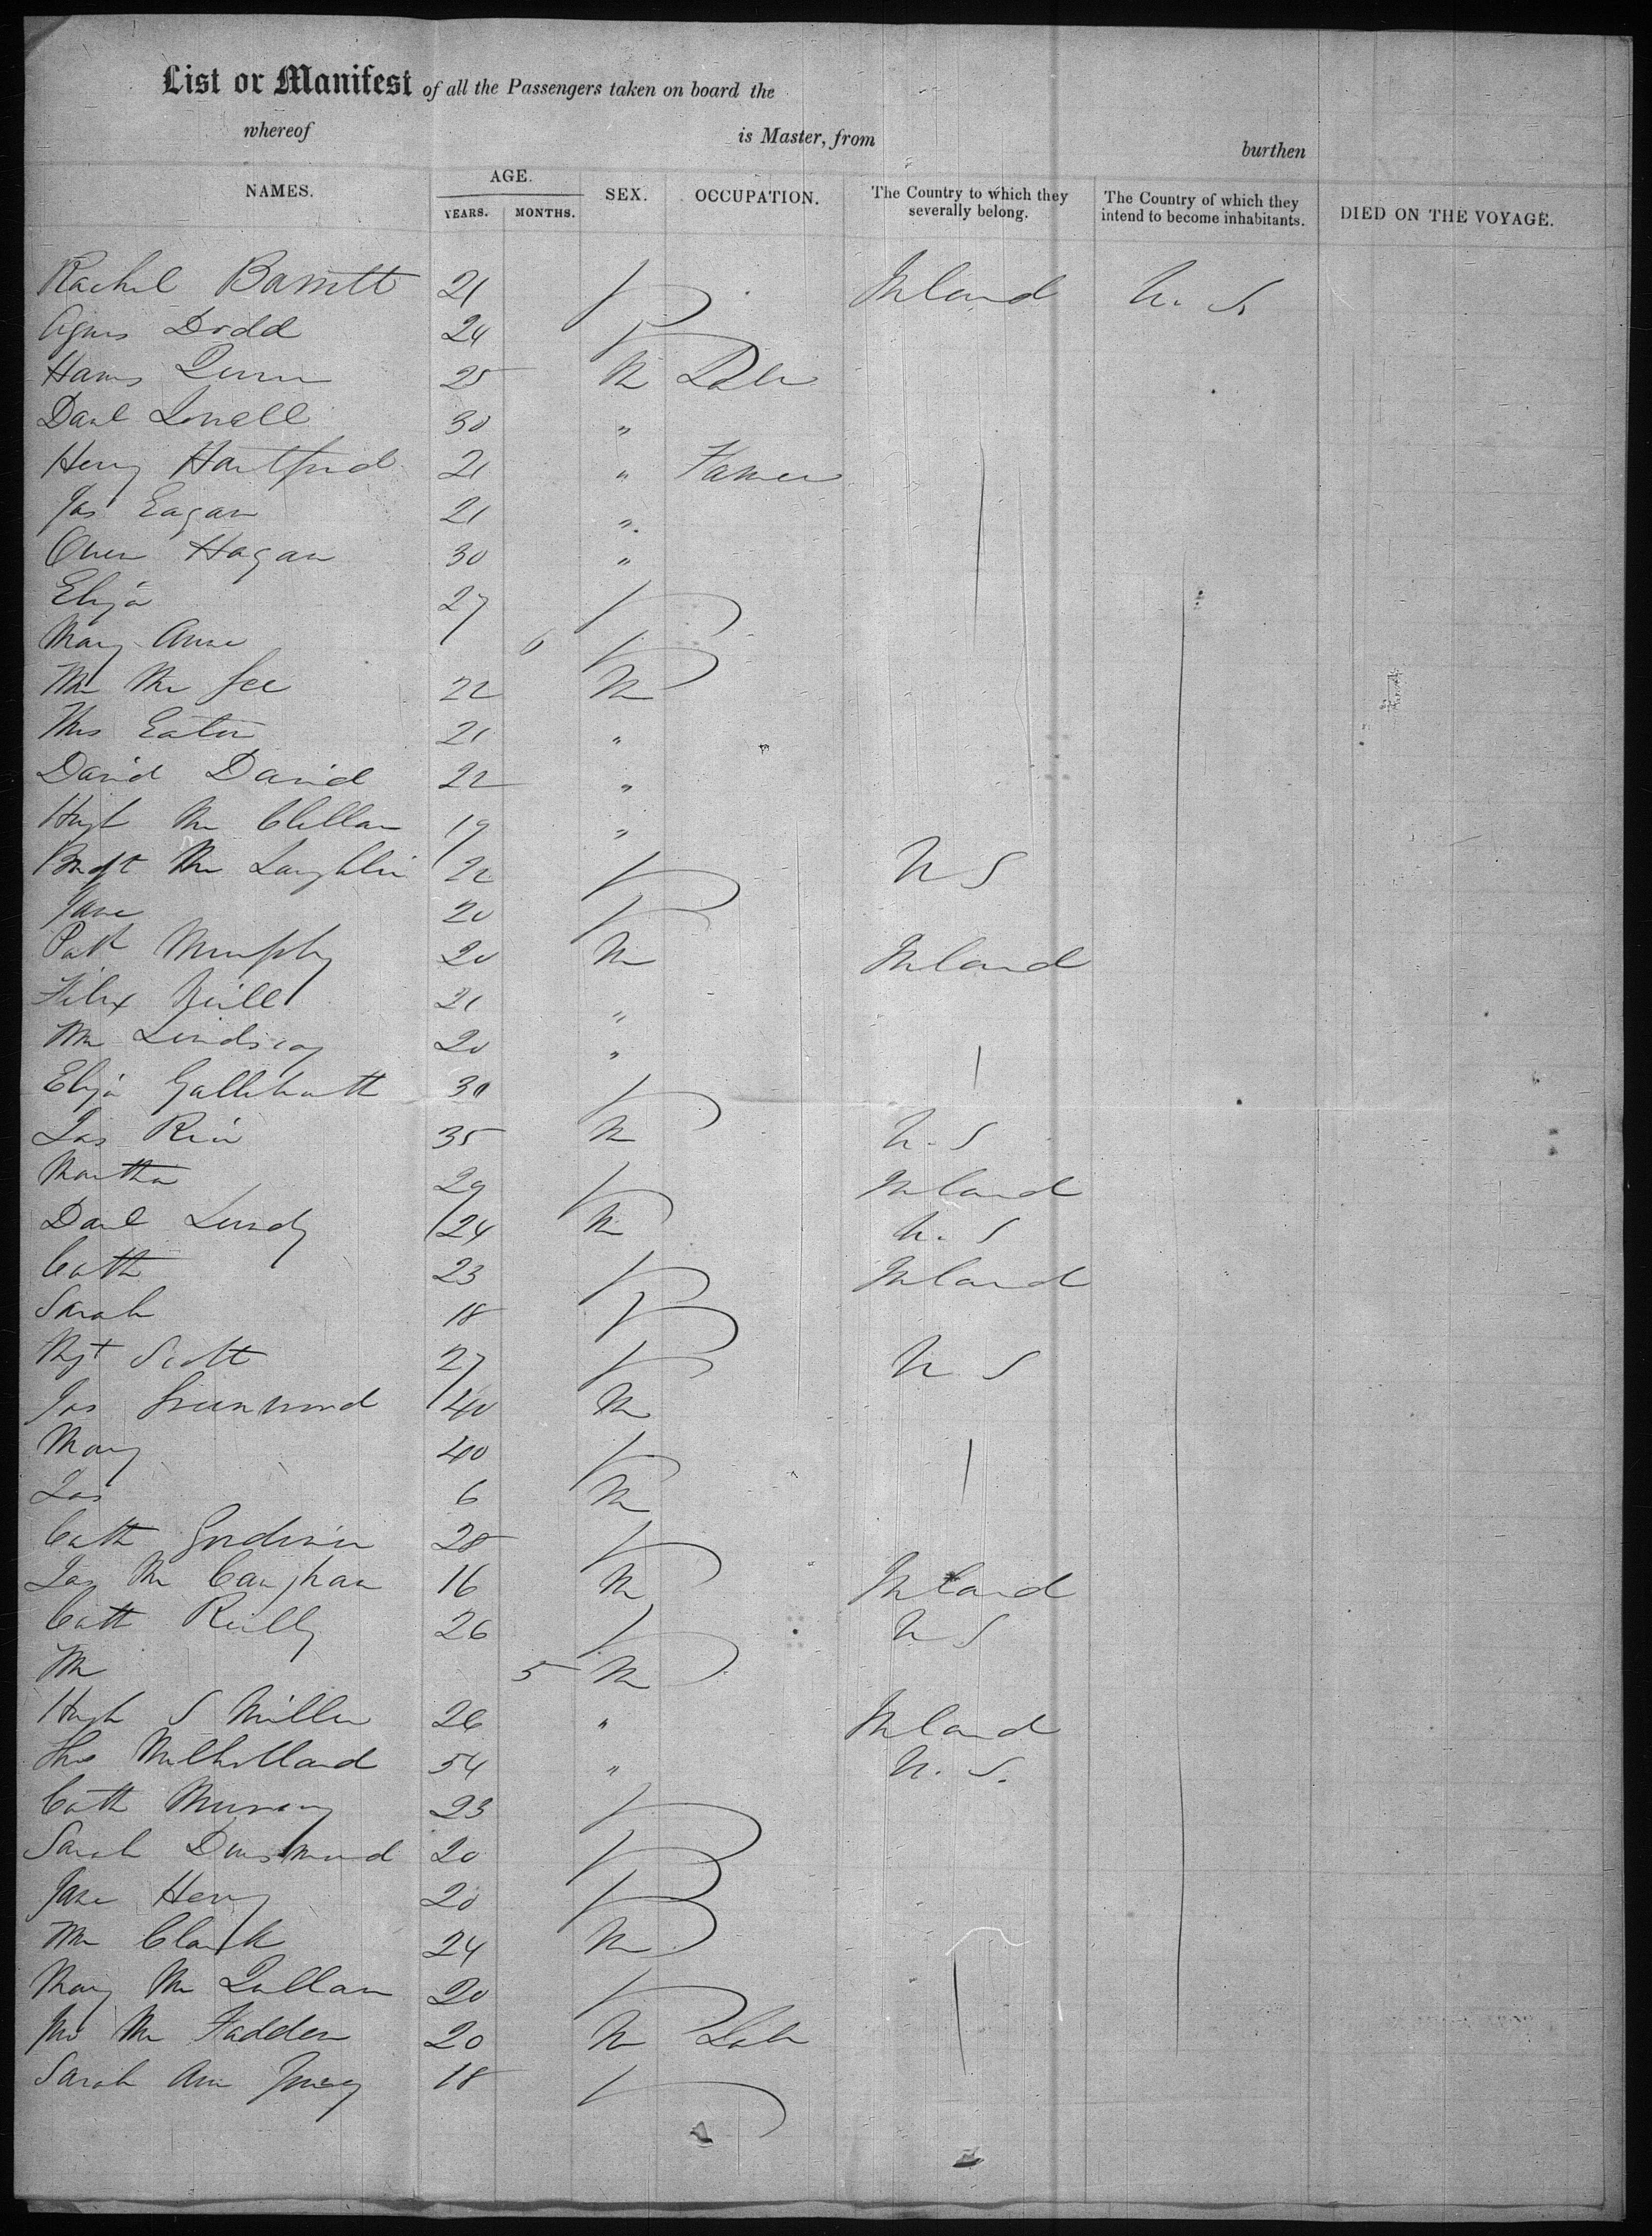 List or Manifest of all the Passengers taken on board the
whereof is Master, from burthen
NAMES. AGE. YEARS. MONTHS. SEX. OCCUPATION. The Country to which they severally belong. The Country of which they intend to become inhabitants. DIED ON THE VOYAGE.
Rachel Barrett 21 F Ireland U. S.
Agnes Dodd 24 F
Quinn 25 M Labr
Danl 30 "
Henry Hartford 21 " Farmer
Jas Eagan 21 "
Owen Hagan 30 "
Eliza 27 F
Mary Anne 6 F
Wm Mc Gee 22 M
Thos Eaton 21 "
David David 22 "
Hugh Mc Clellan 19 "
Bridgt Mc Laughlin 22 F U S
Jane 20 F
Patk Murphy 20 M Ireland
Felix Neill 21 "
Wm Lindsay 20 "
Eliza 30 F
Jas 35 M U. S
Martha 29 F Ireland
Danl Lundy 24 M U. S
Cath 23 F Ireland
Sarah 18 F
Mgt Scott 27 F U S
Jos Greenwood 40 M
Mary 40 F
Jas 6 M
Cath 28 F
Jas Mc 16 M Ireland
Cath Reilly 26 F U S
Wm 5 M
Hugh S Miller 26 " Ireland
Thos Mulholland 54 " U. S.
Cath Murray 23 F
Sarah 20 F
Jane Henry 20 F
Wm Clark 24 M
Mary Mc Quillan 20 F
Jno Mc Fadden 20 M Labr
Sarah Ann 18 F